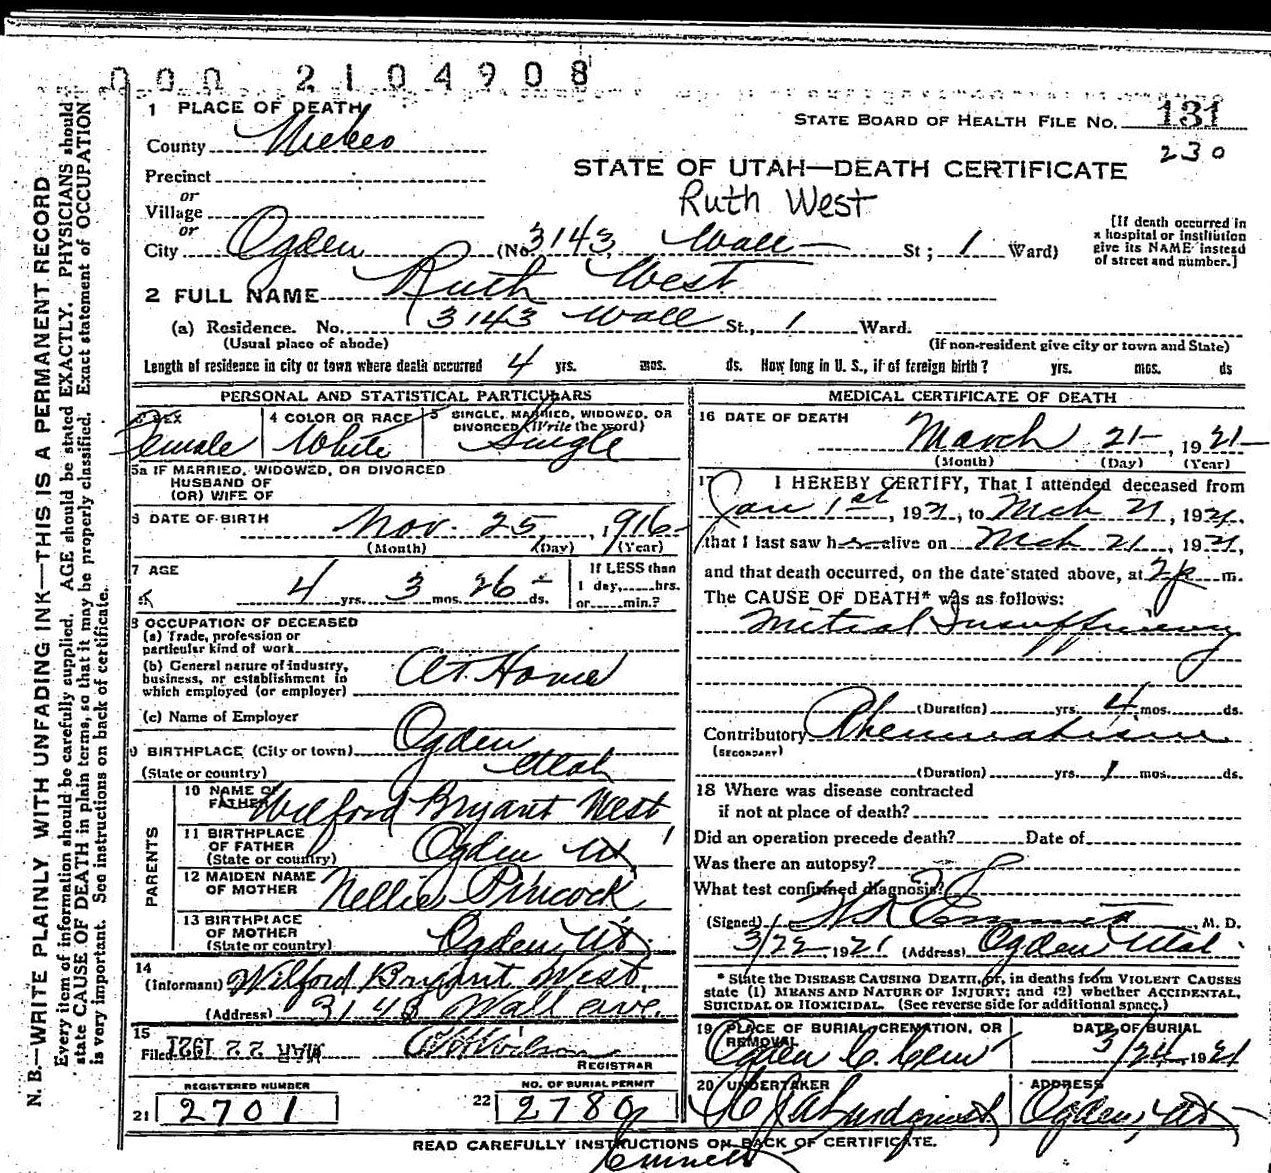 000 2104908
1 PLACE OF DEATH
STATE BOARD OF HEALTH FILE NO. 131
230
County Weber
STATE OF UTAH—DEATH CERTIFICATE
Precinct
or
Ruth West
Village
or
City Ogden (No. 3143 Wall St; 1 Ward)
[If death occurred in
a hospital or institution
give its NAME instead
of street and number.]
2 FULL NAME Ruth West
(a) Residence. No. 3143 Wall St., 1 Ward.
(Usual place of abode) (If non-resident give city or town and State)
Length of residence in city or town where death occurred 4 yrs. mos. ds. How long in U. S., if of foreign birth? yrs. mos. ds
PERSONAL AND STATISTICAL PARTICULARS
3 SEX Female
4 COLOR OR RACE White
5 SINGLE, MARRIED, WIDOWED, OR
DIVORCED (Write the word)
Single
5a IF MARRIED, WIDOWED, OR DIVORCED
HUSBAND OF
(OR) WIFE OF
6 DATE OF BIRTH Nov. 25, 1916
(Month) (Day) (Year)
7 AGE 4 yrs. 3 mos. 26 ds.
If LESS than
1 day, hrs.
or min.?
8 OCCUPATION OF DECEASED
(a) Trade, profession or
particular kind of work
(b) General nature of industry,
business, or establishment in
which employed (or employer)
At Home
(c) Name of Employer
9 BIRTHPLACE (City or town) Ogden
(State or country) Utah
PARENTS
10 NAME OF
FATHER Wilford Bryant West
11 BIRTHPLACE
OF FATHER
(State or country) Ogden Ut
12 MAIDEN NAME
OF MOTHER Nellie Pincock
13 BIRTHPLACE
OF MOTHER
(State or country) Ogden Ut.
14
(Informant) Wilford Bryant West.
(Address) 3143 Wall ave.
15
Filed MAR 22 1921
REGISTRAR
REGISTERED NUMBER
21 2701
NO. OF BURIAL PERMIT
22 2780
MEDICAL CERTIFICATE OF DEATH
16 DATE OF DEATH March 21, 1921
(Month) (Day) (Year)
17 I HEREBY CERTIFY, That I attended deceased from
Jan 1st, 1921, to Mch 21, 1921,
that I last saw her alive on Mch 21, 1921,
and that death occurred, on the date stated above, at 2 p m.
The CAUSE OF DEATH* was as follows:
Mitral Insufficiency
(Duration) yrs. 4 mos. ds.
Contributory Rheumatism
(SECONDARY)
(Duration) yrs. 1 mos. ds.
18 Where was disease contracted
if not at place of death?
Did an operation precede death? Date of
Was there an autopsy?
What test confirmed diagnosis?
(Signed) M. D.
3/22, 1921 (Address) Ogden Utah
* State the DISEASE CAUSING DEATH, or, in deaths from VIOLENT CAUSES
state (1) MEANS AND NATURE OF INJURY; and (2) whether ACCIDENTAL,
SUICIDAL OR HOMICIDAL. (See reverse side for additional space.)
19 PLACE OF BURIAL, CREMATION, OR
REMOVAL
Ogden C. Cem
DATE OF BURIAL
3/24, 1921
20 UNDERTAKER
ADDRESS
Ogden, Ut
READ CAREFULLY INSTRUCTIONS ON BACK OF CERTIFICATE.
Emmett
N. B.—WRITE PLAINLY WITH UNFADING INK—THIS IS A PERMANENT RECORD
Every item of information should be carefully supplied. AGE should be stated EXACTLY. PHYSICIANS should
state CAUSE OF DEATH in plain terms, so that it may be properly classified. Exact statement of OCCUPATION
is very important. See instructions on back of certificate.